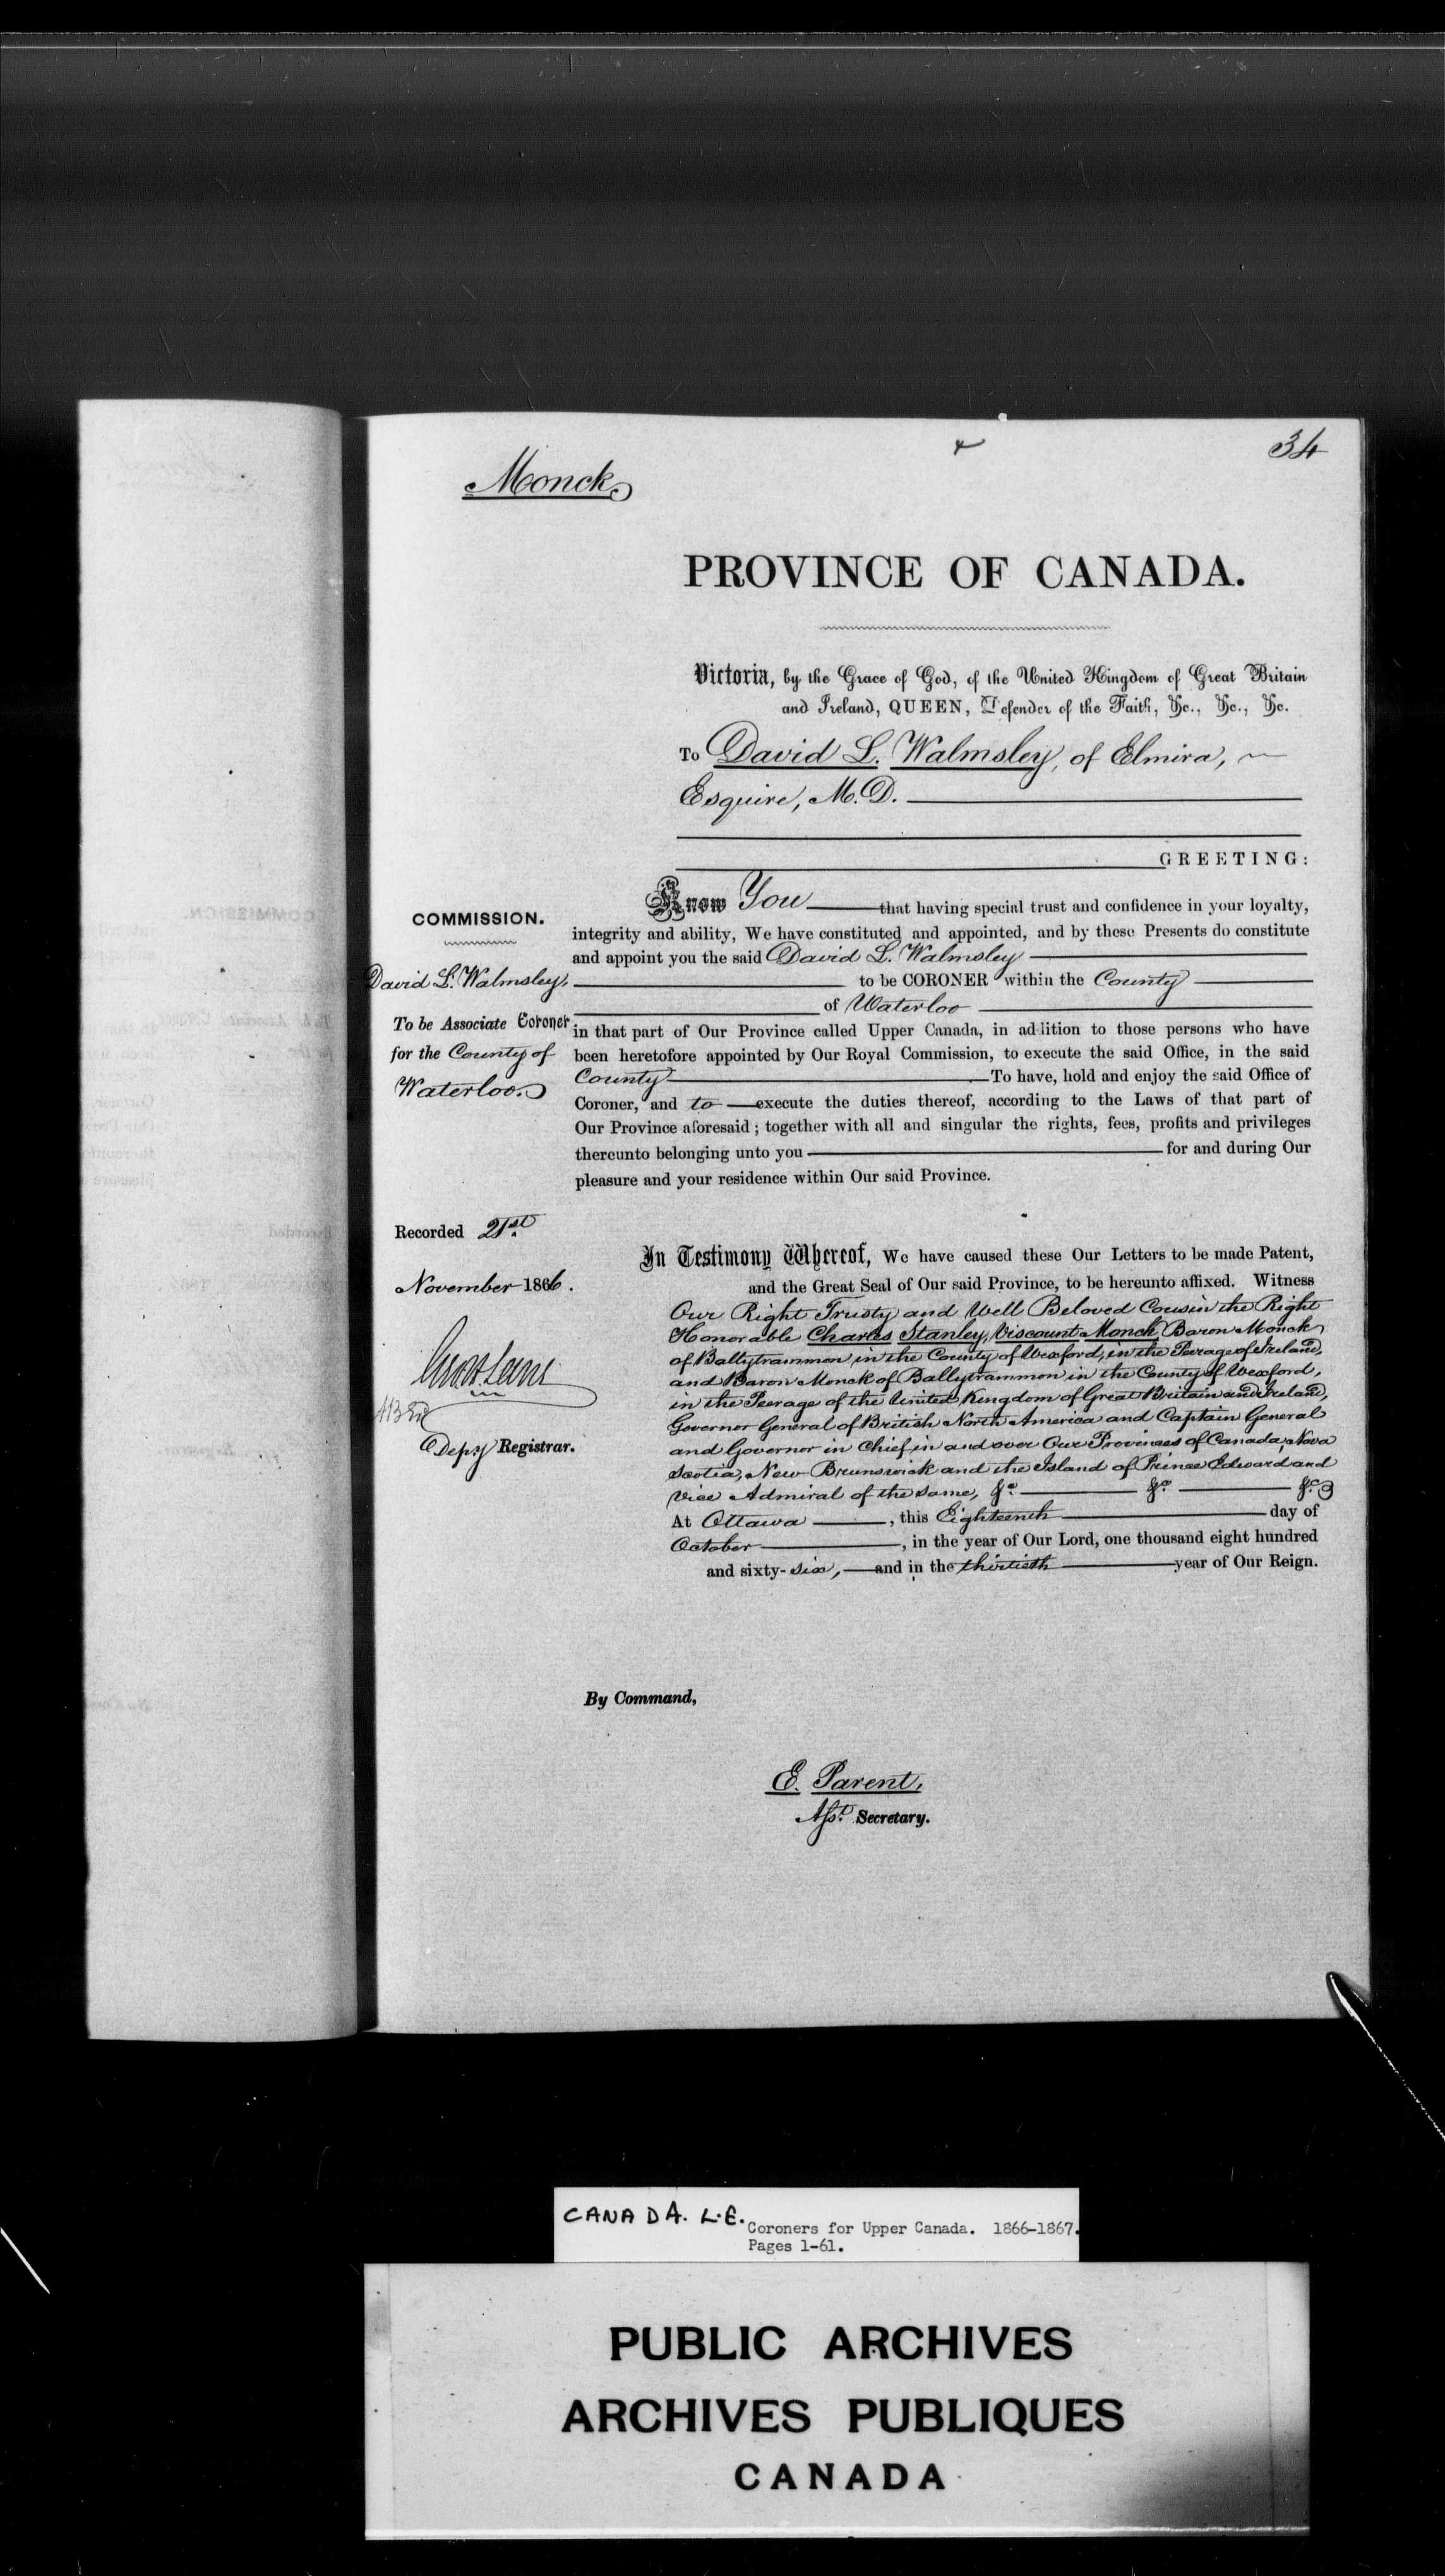 34
Monck
PROVINCE OF CANADA.
Victoria, by the Grace of God, of the United Kingdom of Great Britain
and Ireland, QUEEN, Defender of the Faith, &c., &c., &c.
To David L. Walmsley, of Elmira,
Esquire, M.D.
GREETING:
Know You that having special trust and confidence in your loyalty,
integrity and ability, We have constituted and appointed, and by these Presents do constitute
and appoint you the said David L. Walmsley
to be CORONER within the County
of Waterloo
in that part of Our Province called Upper Canada, in addition to those persons who have
been heretofore appointed by Our Royal Commission, to execute the said Office, in the said
County To have, hold and enjoy the said Office of
Coroner, and to execute the duties thereof, according to the Laws of that part of
Our Province aforesaid; together with all and singular the rights, fees, profits and privileges
thereunto belonging unto you for and during Our
pleasure and your residence within Our said Province.
COMMISSION.
David L. Walmsley,
To be Associate Coroner
for the County of
Waterloo.
Recorded 21st.
November 1866.
Depy Registrar.
In Testimony Whereof, We have caused these Our Letters to be made Patent,
and the Great Seal of Our said Province, to be hereunto affixed. Witness
Our Right Trusty and Well Beloved Cousin the Right
Honorable Charles Stanley, Viscount Monck, Baron Monck
of Ballytrammon in the County of Wexford, in the Peerage of Ireland,
and Baron Monck of Ballytrammon in the County of Wexford,
in the Peerage of the United Kingdom of Great Britain and Ireland,
Governor General of British North America and Captain General
and Governor in Chief in and over Our Provinces of Canada, Nova
Scotia, New Brunswick and the Island of Prince Edward and
Vice Admiral of the same, &c &c &c
At Ottawa, this Eighteenth day of
October, in the year of Our Lord, one thousand eight hundred
and sixty-six, and in the thirtieth year of Our Reign.
By Command,
E. Parent,
Asst. Secretary.
CANADA. L.E.
Coroners for Upper Canada. 1866-1867.
Pages 1-61.
PUBLIC ARCHIVES
ARCHIVES PUBLIQUES
CANADA